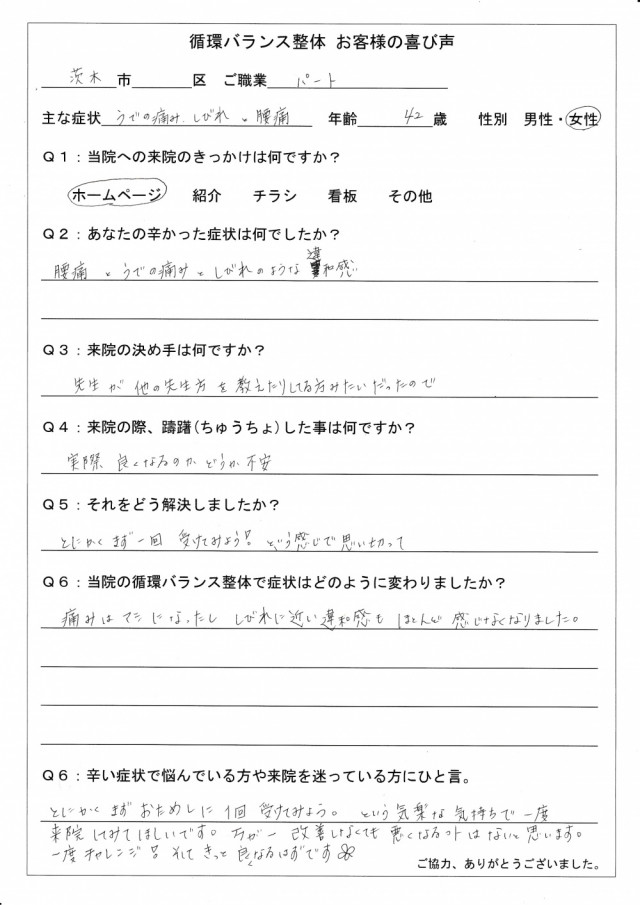 循環バランス整体 お客様の喜び声
茨木市 区 ご職業 パート
主な症状 うでの痛み、しびれ、腰痛 年齢 42 歳 性別 男性・女性
Q1：当院への来院のきっかけは何ですか？
ホームページ 紹介 チラシ 看板 その他
Q2：あなたの辛かった症状は何でしたか？
腰痛 と うでの痛みと しびれのような違和感
Q3：来院の決め手は何ですか？
先生が 他の先生方を 教えたりしてる方みたいだったので
Q4：来院の際、躊躇(ちゅうちょ)した事は何ですか？
実際 良くなるのか どうか 不安
Q5：それをどう解決しましたか？
とにかく まず 一回 受けてみよう！ という感じで 思い切って
Q6：当院の循環バランス整体で症状はどのように変わりましたか？
痛みは マシに なったし しびれに近い 違和感も ほとんど 感じなくなりました。
Q6：辛い症状で悩んでいる方や来院を迷っている方にひと言。
とにかく まず おためしに 1回 受けてみよう。 という 気楽な 気持ちで 一度
来院 してみて ほしいです。 万が一 改善しなくても 悪くなるコトは ないと 思います。
一度 チャレンジ！ そして きっと 良くなるはずです
ご協力、ありがとうございました。